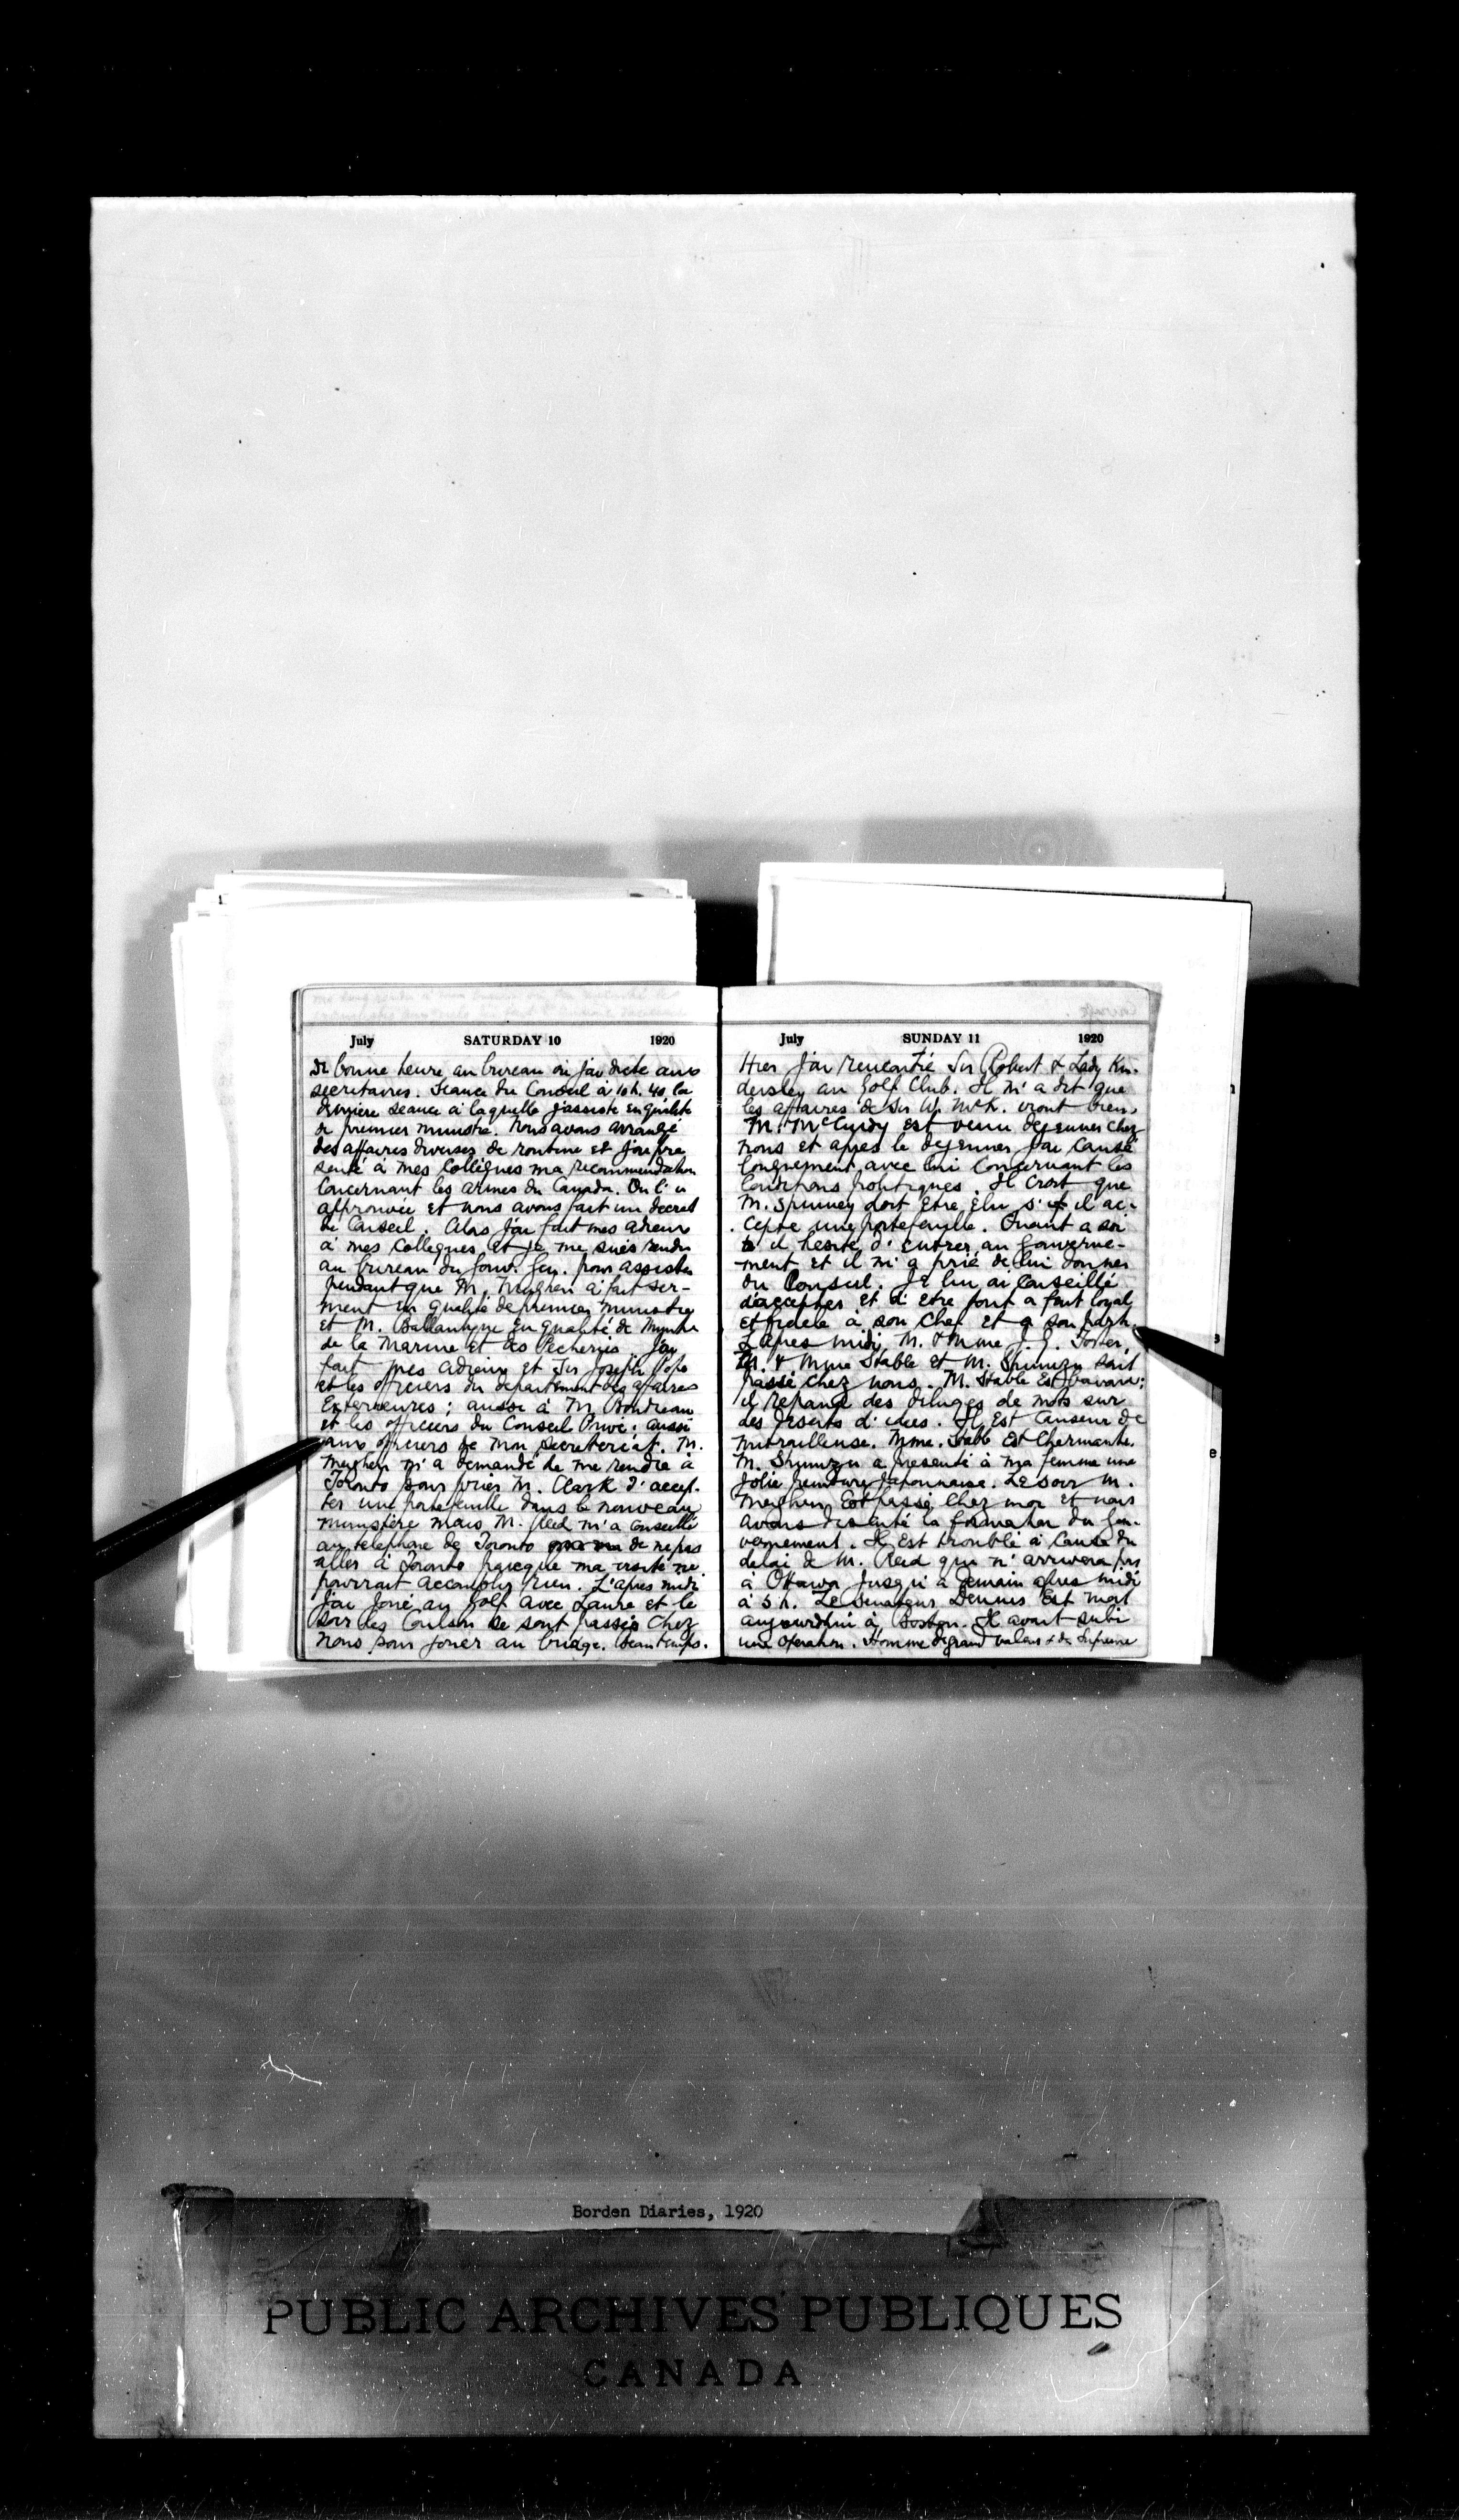 July SATURDAY 10 1920
De bonne heure au bureau où j'ai dicté aux
secretaires. Seance du Conseil à 10 h. 40, la
derniere seance à laquelle j'assiste en qualité
de premier ministre. Nous avons arrangé
des affaires diverses de routine et j'ai pre
senté à mes Collègues ma recommendation
Concernant les armes du Canada. On l'a
approuvée et nous avons fait un decret
du Conseil. Alors j'ai fait mes adieux
à mes Collegues et je me suis rendu
au bureau du Gouv. Gen. pour assister
pendant que M. Meighen a fait ser-
ment en qualité de premier ministre
et M. Ballantyne en qualité de Ministre
de la Marine et des Pecheries. J'ai
fait mes adieux et Sir Joseph Pope
et les officiers du departement des affaires
Exterieures; aussi à M. Boudreau
et les officiers du Conseil Privé; aussi
aux officiers de mon secreteriat. M.
Meighen m'a demandé de me rendre à
Toronto pour prier M. Clark d'accep-
ter une portefeuille dans le nouveau
ministère mais M. Reid m'a conseillé
au telephone de Toronto de ne pas
aller à Toronto parceque ma visite ne
pourrait accomplir rien. L'apres midi
j'ai joué au Golf avec Laura et le
soir les Coulson se sont passés chez
nous pour jouer au bridge. beau temps.
July SUNDAY 11 1920
Hier j'ai rencontré Sir Robert & Lady Kin-
dersley au Golf Club. Il m'a dit que
les affaires de Sir W. McK. iront bien.
M. McCurdy est venu dejeuner chez
nous et apres le dejeuner j'ai causé
longuement avec lui Concernant les
Conditions politiques. Il croit que
M. Spinney doit etre elu s'il ac-
cepte une portefeuille. Quant a soi
il hesite d'entrer au Gouverne-
ment et il m'a prié de lui donner
du Conseil. Je lui ai Conseillé
d'accepter et d'etre tout a fait loyal
et fidele à son Chef et a son parti.
L'apres midi, M. & Mme J. G. Foster,
M. & Mme Stable et M. Shimizu sont
passé chez nous. M. Stable est bavard;
il repand des deluges de mots sur
des deserts d'idees. Il est Causeur de
mitrailleuse. Mme. Stable est Charmante.
M. Shimizu a presenté à ma femme une
jolie peinture Japonnaise. Le soir M.
Meighen est passé chez moi et nous
avons discuté la formation du Gou-
vernement. Il est troublé à Cause du
delai de M. Reid qui n'arrivera pas
à Ottawa jusqu'a demain apres midi
à 5 h. Le Senateur Dennis est mort
aujourdhui à Boston. Il avait subi
une operation. Homme de grand valeur & de supreme
Borden Diaries, 1920
PUBLIC ARCHIVES PUBLIQUES
CANADA